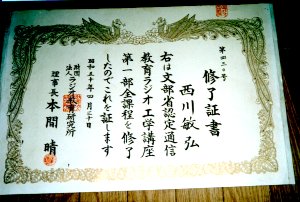 第四二号
修了証書
西川敏弘
右は文部省認定通信
教育ラジオ工学講座
第一部全課程を修了
したのでこれを証します
昭和五十年四月三十日
財団法人 ラジオ教育研究所
理事長 本間晴